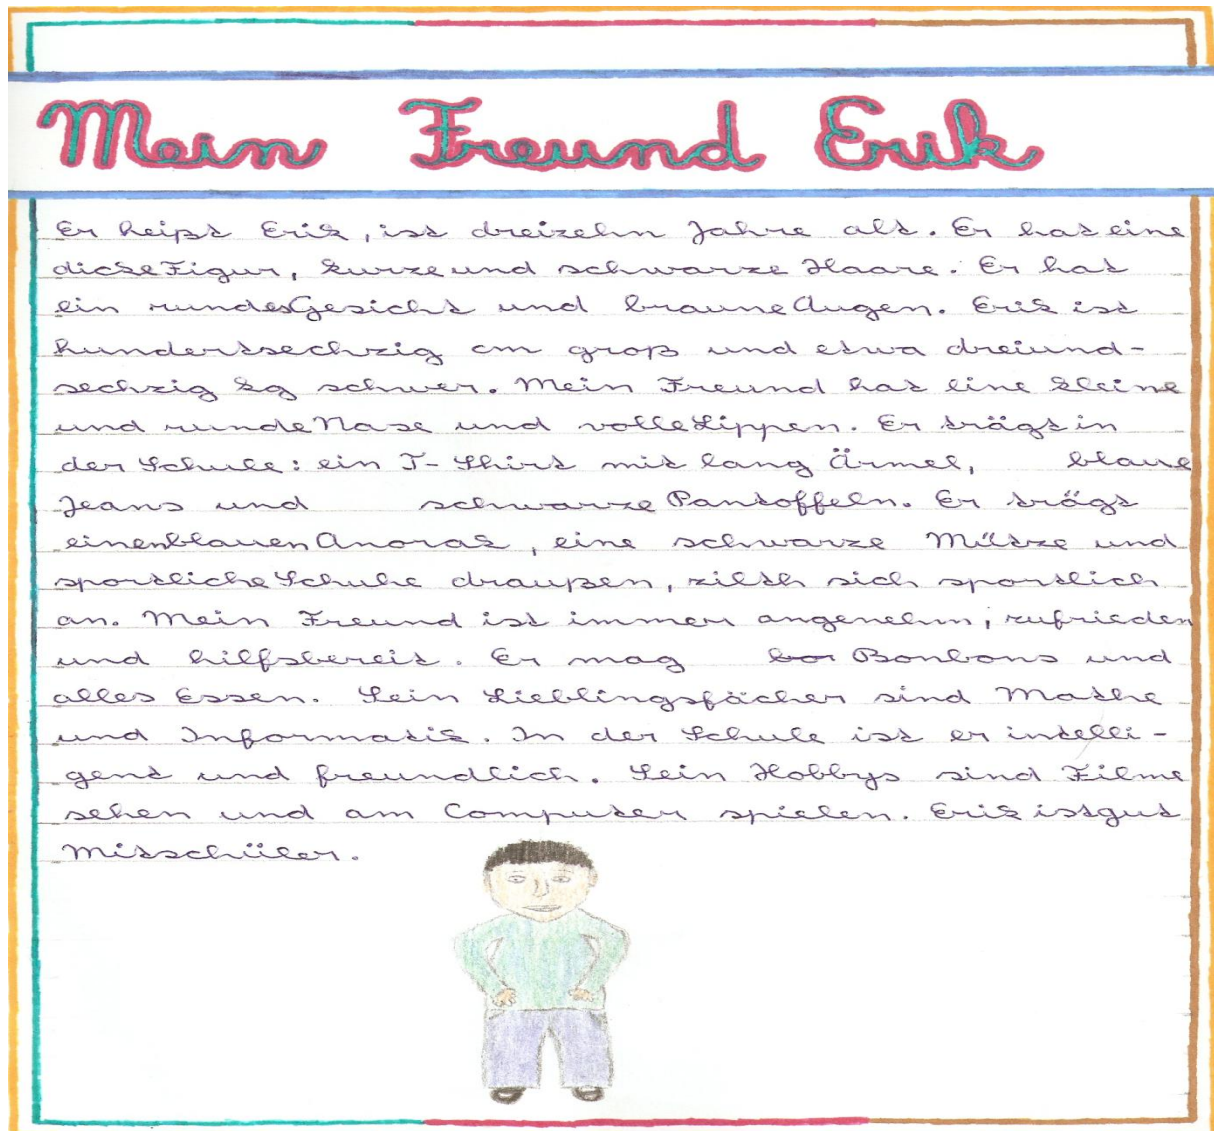 Mein Freund Erik
Er heißt Erik, ist dreizehn Jahre alt. Er hat eine
dicke Figur, kurze und schwarze Haare. Er hat
ein rundes Gesicht und braune Augen. Erik ist
hundertsechzig cm groß und etwa dreiund-
sechzig kg schwer. Mein Freund hat eine kleine
und runde Nase und volle Lippen. Er trägt in
der Schule: ein T-Shirt mit lang Ärmel, blaue
Jeans und schwarze Pantoffeln. Er trägt
einen blauen Anorak, eine schwarze Mütze und
sportliche Schuhe draußen, zilth sich sportlich
an. Mein Freund ist immer angenehm, zufrieden
und hilfsbereit. Er mag bor Bonbons und
alles Essen. Sein Lieblingsfächer sind Mathe
und Informatik. In der Schule ist er intelli-
gent und freundlich. Sein Hobbys sind Filme
sehen und am Computer spielen. Erik ist gut
Mitschüler.